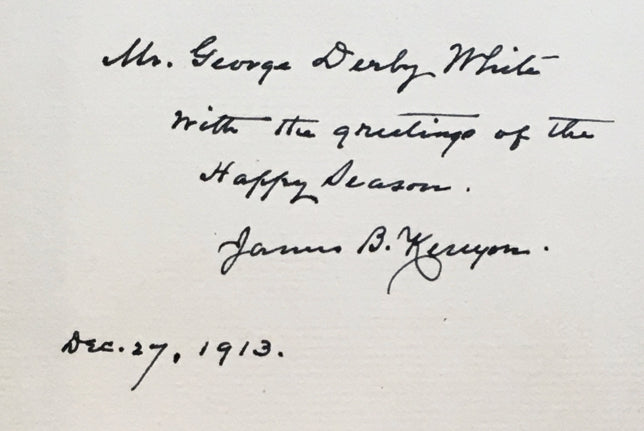 Mr. George Derby White
With the greetings of the
Happy Season.
James B. Kenyon.
Dec. 27, 1913.